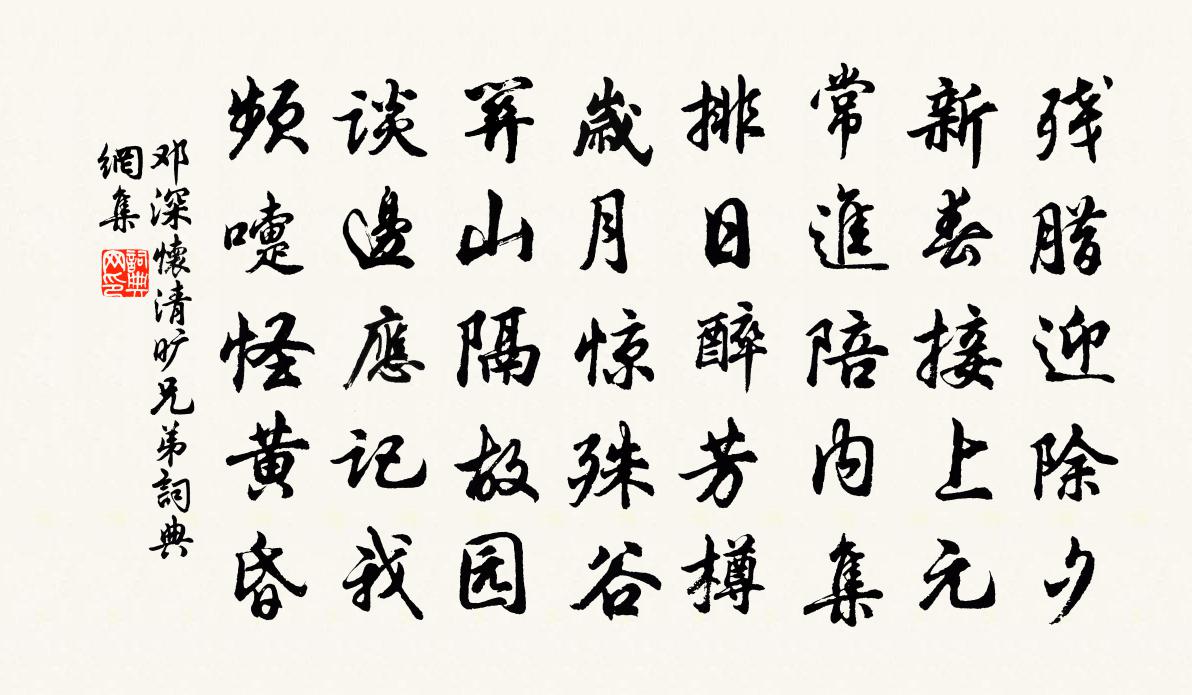 残腊迎除夕
新春接上元
常進陪内集
排日醉芳樽
歳月惊殊谷
關山隔故园
谈邊應记我
频嚏怪黄昏
邓深懷清旷兄弟詞典
網集
詞典网印